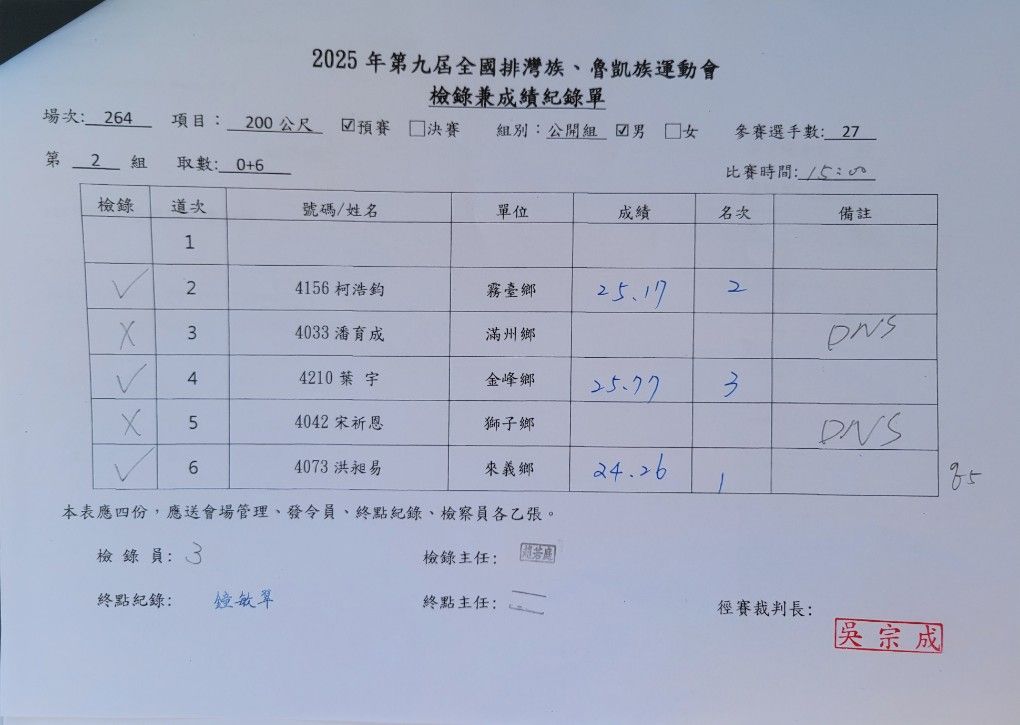 2025 年第九屆全國排灣族、魯凱族運動會
檢錄兼成績紀錄單
場次: 264 項目: 200 公尺 ☑預賽 ☐決賽 組別:公開組 ☑男 ☐女 參賽選手數: 27
第 2 組 取數: 0+6 比賽時間: 15:00
檢錄 道次 號碼/姓名 單位 成績 名次 備註
1
✓ 2 4156 柯浩鈞 霧臺鄉 25.17 2
X 3 4033 潘育成 滿州鄉 DNS
✓ 4 4210 葉 宇 金峰鄉 25.77 3
X 5 4042 宋祈恩 獅子鄉 DNS
✓ 6 4073 洪昶易 來義鄉 24.26 1
本表應四份,應送會場管理、發令員、終點紀錄、檢察員各乙張。
檢 錄 員: 3 檢錄主任:
終點紀錄: 鐘敏翠 終點主任:
徑賽裁判長: 吳宗成